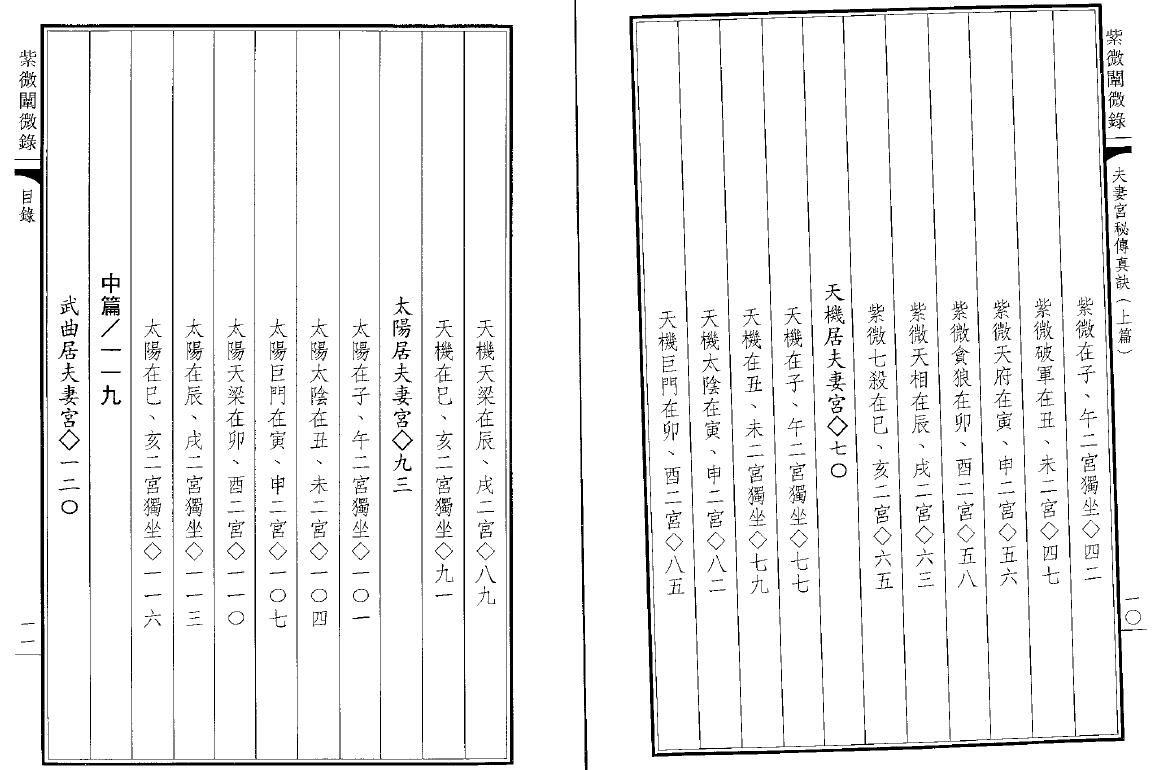 紫微闡微錄
夫妻宮秘傳真訣（上篇）
一〇
紫微在子、午二宮獨坐◇四二
紫微破軍在丑、未二宮◇四七
紫微天府在寅、申二宮◇五六
紫微貪狼在卯、酉二宮◇五八
紫微天相在辰、戌二宮◇六三
紫微七殺在巳、亥二宮◇六五
天機居夫妻宮◇七〇
天機在子、午二宮獨坐◇七七
天機在丑、未二宮獨坐◇七九
天機太陰在寅、申二宮◇八二
天機巨門在卯、酉二宮◇八五
天機天梁在辰、戌二宮◇八九
天機在巳、亥二宮獨坐◇九一
太陽居夫妻宮◇九三
太陽在子、午二宮獨坐◇一〇一
太陽太陰在丑、未二宮◇一〇四
太陽巨門在寅、申二宮◇一〇七
太陽天梁在卯、酉二宮◇一一〇
太陽在辰、戌二宮獨坐◇一一三
太陽在巳、亥二宮獨坐◇一一六
中篇／一一九
武曲居夫妻宮◇一二〇
紫微闡微錄
目錄
一一